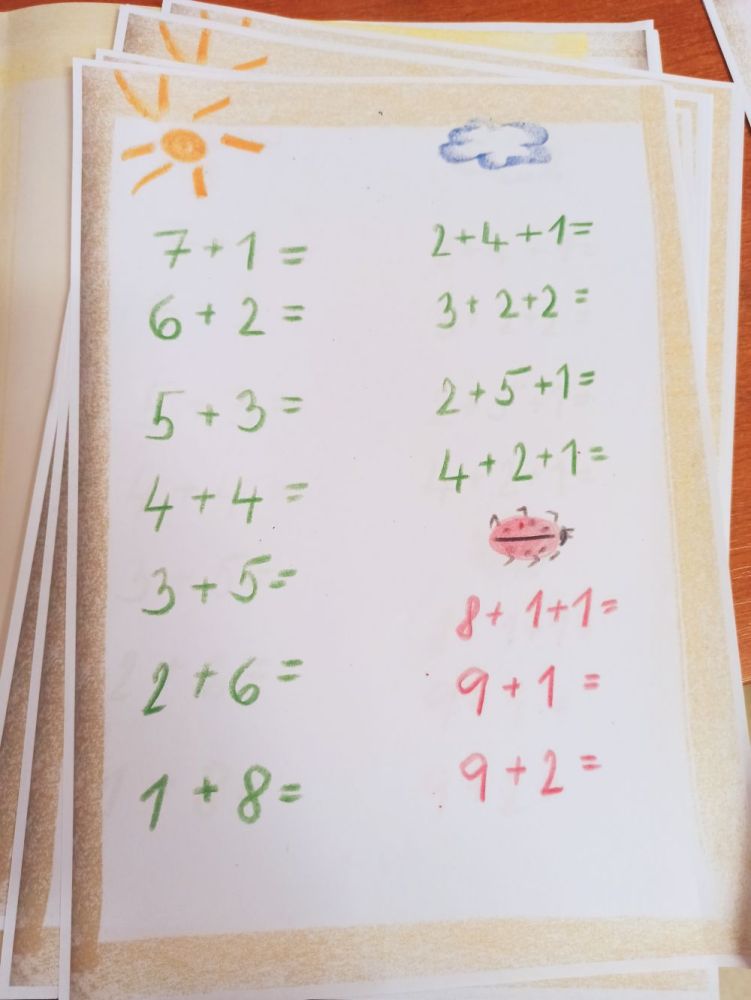 7+1=
6+2=
5+3=
4+4=
3+5=
2+6=
1+8=
2+4+1=
3+2+2=
2+5+1=
4+2+1=
8+1+1=
9+1=
9+2=